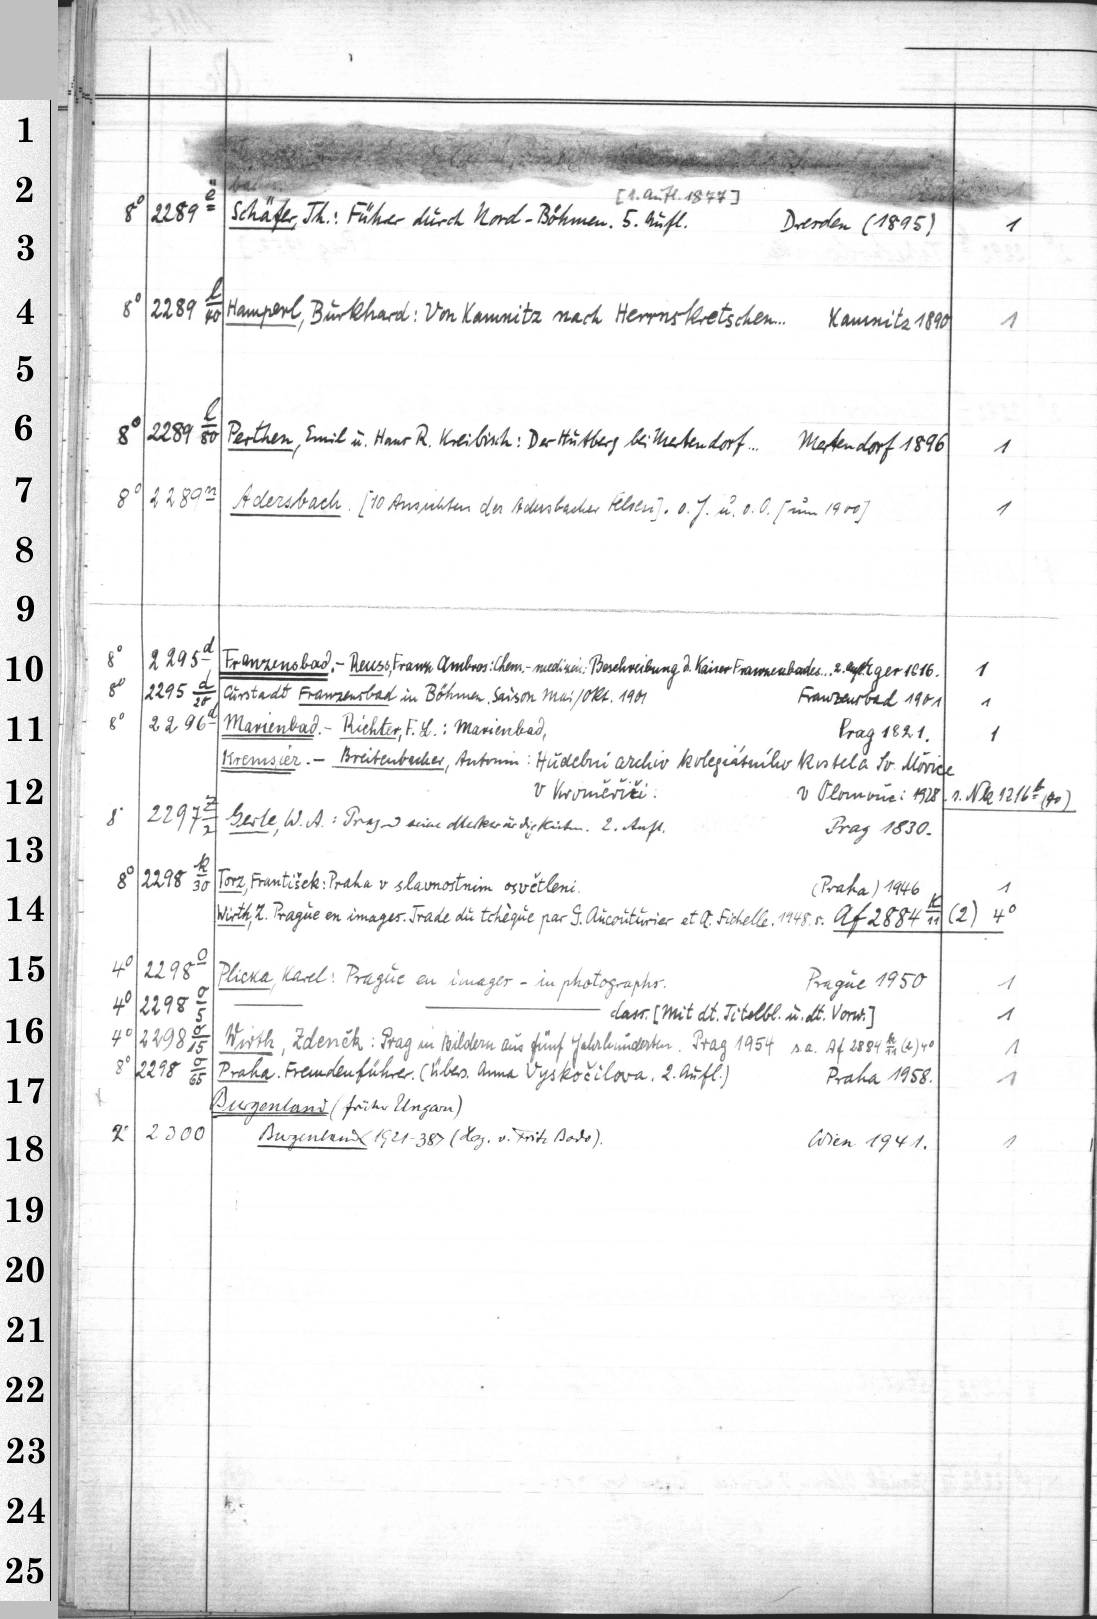 1
2
3
4
5
6
7
8
9
10
11
12
13
14
15
16
17
18
19
20
21
22
23
24
25
[1. Aufl. 1877]
8° 2289 e Schäfer, Th.: Führer durch Nord-Böhmen. 5. Aufl. Dresden (1895) 1
8° 2289 l/40 Hamperl, Burkhard: Von Kamnitz nach Herrnskretschen... Kamnitz 1890 1
8° 2289 l/80 Perthen, Emil u. Hans R. Kreibich: Der Hutberg bei Mertendorf... Mertendorf 1896 1
8° 2289 n Adersbach. [10 Ansichten der Adersbacher Felsen]. o. J. u. o. O. [um 1900] 1
8° 2295 d Franzensbad. - Reuss, Franz Ambros: Chem.-medizin. Beschreibung d. Kaiser Franzensbades... 2. Aufl. Eger 1816. 1
8° 2295 d/20 Curstadt Franzensbad in Böhmen. Saison Mai/Okt. 1901 Franzensbad 1901 1
8° 2296 d Marienbad. - Richter, F. H.: Marienbad, Prag 1821. 1
Kremsier. - Breitenbacher, Antonin: Hudební archiv kolegiátního kostela Sv. Mořice
v Kroměříži. v Olomouc: 1928. s. 1216 (40)
8° 2297 Gerle, W. A.: Prag u seine Merkwürdigkeiten. 2. Aufl. Prag 1830.
8° 2298 k/30 Torz, František: Praha v slavnostnim osvětleni. (Praha) 1946 1
Wirth, Z. Prague en images. Trade du tchèque par G. Aucouturier et A. Fichelle. 1948. s. Af 2884 k/11 (2) 4°
4° 2298 o Plicka, Karel: Prague en images - in photographs. Prague 1950 1
4° 2298 o/5 ——— ——— dass. [Mit dt. Titelbl. u. dt. Vorw.] 1
4° 2298 o/15 Wirth, Zdeněk: Prag in Bildern aus fünf Jahrhunderten. Prag 1954 s. a. Af 2884 k/11 (2) 4° 1
8° 2298 o/65 Praha. Fremdenführer. (Übers. Anna Vyskočilova. 2. Aufl.) Praha 1958. 1
Burgenland (früher Ungarn)
2° 2300 Burgenland 1921-38 (Hrg. v. Fritz Bodo). Wien 1941. 1